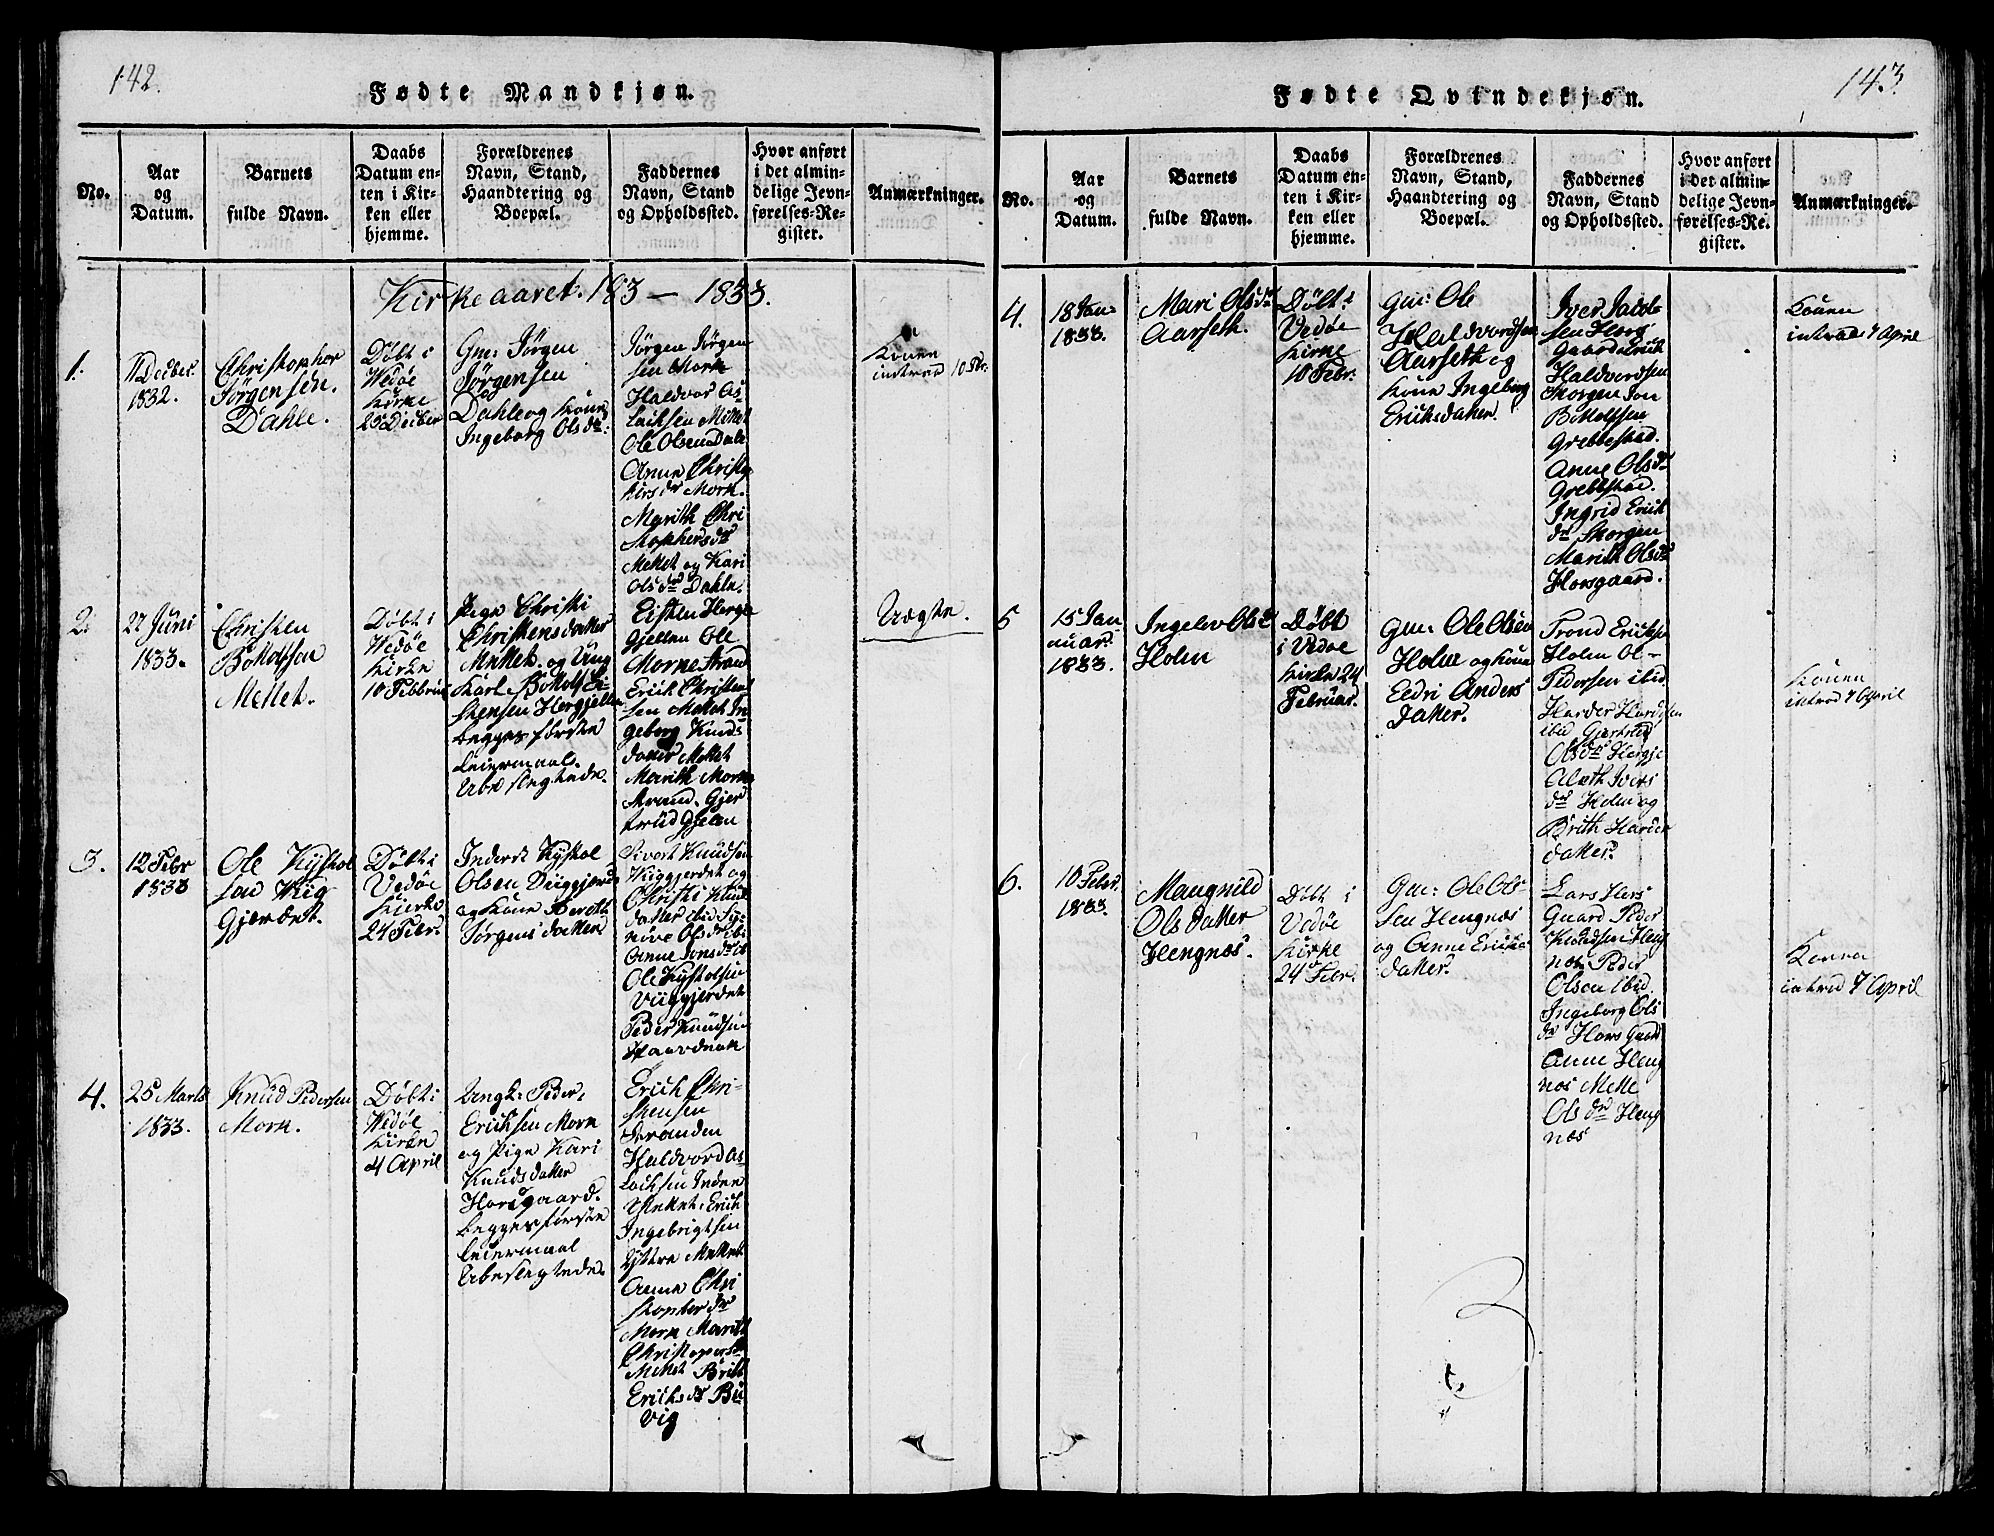 142.
Fødte Mandkjøn.
No.
Aar
og
Datum.
Barnets
fulde Navn.
Daabs
Datum en-
ten i Kir-
ken eller
hjemme.
Forældrenes
Navn, Stand,
Haandtering og
Boepæl.
Faddernes
Navn, Stand
og Opholdssted.
Hvor anført
i det almin-
delige Jevn-
førelses-Re-
gister.
Anmærkninger.
Kirkeaaret. 183 — 1833.
1.
11 Decbr.
1832.
Christopher
Jørgensen.
Dahle.
Døbt i
Wedøe
Kirke
25 Decber
Gm: Jørgen
Jørgensen
Dahle og Kone
Ingeborg Olsdr:
Jørgen Jørgen
sen Mork
Haldvor As-
lachsen Mittet
Ole Olsen Dale
Anne Christop
hers dr Mork.
Marith Chri
stophersdr
Mittet og Kari
Olsdr Dahle.
Konen
introd 10 Febr.
2.
27 Juni
1833.
Christen
Bottolfsen
Mittet.
Døbt i
Wedøe
Kirke
10 Febbruar
Pige Christi
Christensdatter
Mittet. og Ung
Karl Bottolf Ei-
stensen Hergjellen
begges første
Leiermaal.
Ubeslegtede.
Eisten Herge
Gjellen Ole
Morkestrand
Erich Christen
sen Mittet In
geborg Knuds
datter Mittet
Marith Mork
strand. Gjer
trud Gjelen
Uægte.
3.
12 Febr
1833
Ole Kystol
sen Wiig
Gjerdet.
Døbt i
Vedøe
Kierke
24 Febr.
Inderst Kystol
Olsen Viiggjerde
og Kone Berith
Jørgensdatter
Sivert Knudsen
Wiggjerdet og
Christi Knuds
datter ibid Sig-
nove Olsdr ibi
Anne Jonsdr ib
Ole Kystolsen
Viiggjerdet
Peder Knudsen
4.
25 Marts
1833.
Knud Pedersen
Mork.
Døbt i
Wedøe
Kirke
4 April
Ungk: Peder
Erichsen Mork
og Pige Kari
Knudsdatter
Horsgaard.
begges første
Leiermaal
Ubeslegtede.
Erich Chri-
stensen
Stranden
Haldvord As-
lachsen Indre
Mittet. Erich
Ingebrigtsen
Ystre Mittet.
Anne Chri
stopher dr
Mork Marith
Christopersdr
Mittet Brith
Erichsdr Bu
vig
143.
Fødte Qvindekjøn.
No.
Aar
og
Datum.
Barnets
fulde Navn.
Daabs
Datum en-
ten i Kir-
ken eller
hjemme.
Forældrenes
Navn, Stand,
Haandtering og
Boepæl.
Faddernes
Navn, Stand
og Opholdssted.
Hvor anført
i det almin-
delige Jevn-
førelses-Re-
gister.
Anmærkninger.
4.
18 Jan-
1833.
Mari Olsdr
Aarseth.
Døbt i
Vedøe
Kirke
10 Febr.
Gm: Ole
Haldvordsen
Aarseth og
Kone Ingeborg
Erichsdatter.
Iver Jacob-
sen Hors
Gaard Erich
Haldvordsen
Skorgen Jon
Bottolfsen
Grebbestad.
Anne Olsdr
Grebbstad.
Ingrid Erich
dr Skorgen
Marith Olsdr
Horsgaard.
Konen
introd 7 April
5
15 Jan
nuar.
1833.
Ingelev Olsdr
Holm
Døbt
i Vedøe
Kirke 24
Februar.
Gm: Ole Olsen
Holm og Kone
Eedri Anders
datter.
Trond Erichsen
Holm Ol-
Pedersen ibid
Harder Hardersen
ibid Gjertrud
Olsdr Hergje
Aleth Ivers
dr Holm og
Brith Harder
datter.
Konen
introd 7 April
6.
10 Febr.
1833.
Maugnild
Olsdatter
Hengnæs.
Døbt i
Vedøe
Kirke
24 Febr.
Gm: Ole Ols-
sen Hengnæs
og Anne Erichs
datter.
Lars Hors
Gaard Peder
Knudsen Heng
næs Peder
Olsen ibid.
Ingeborg Ols
dr Hors Gaard
Anne Heng
næs Mette
Ols dr Heng
næs
Konen
introd 7 April